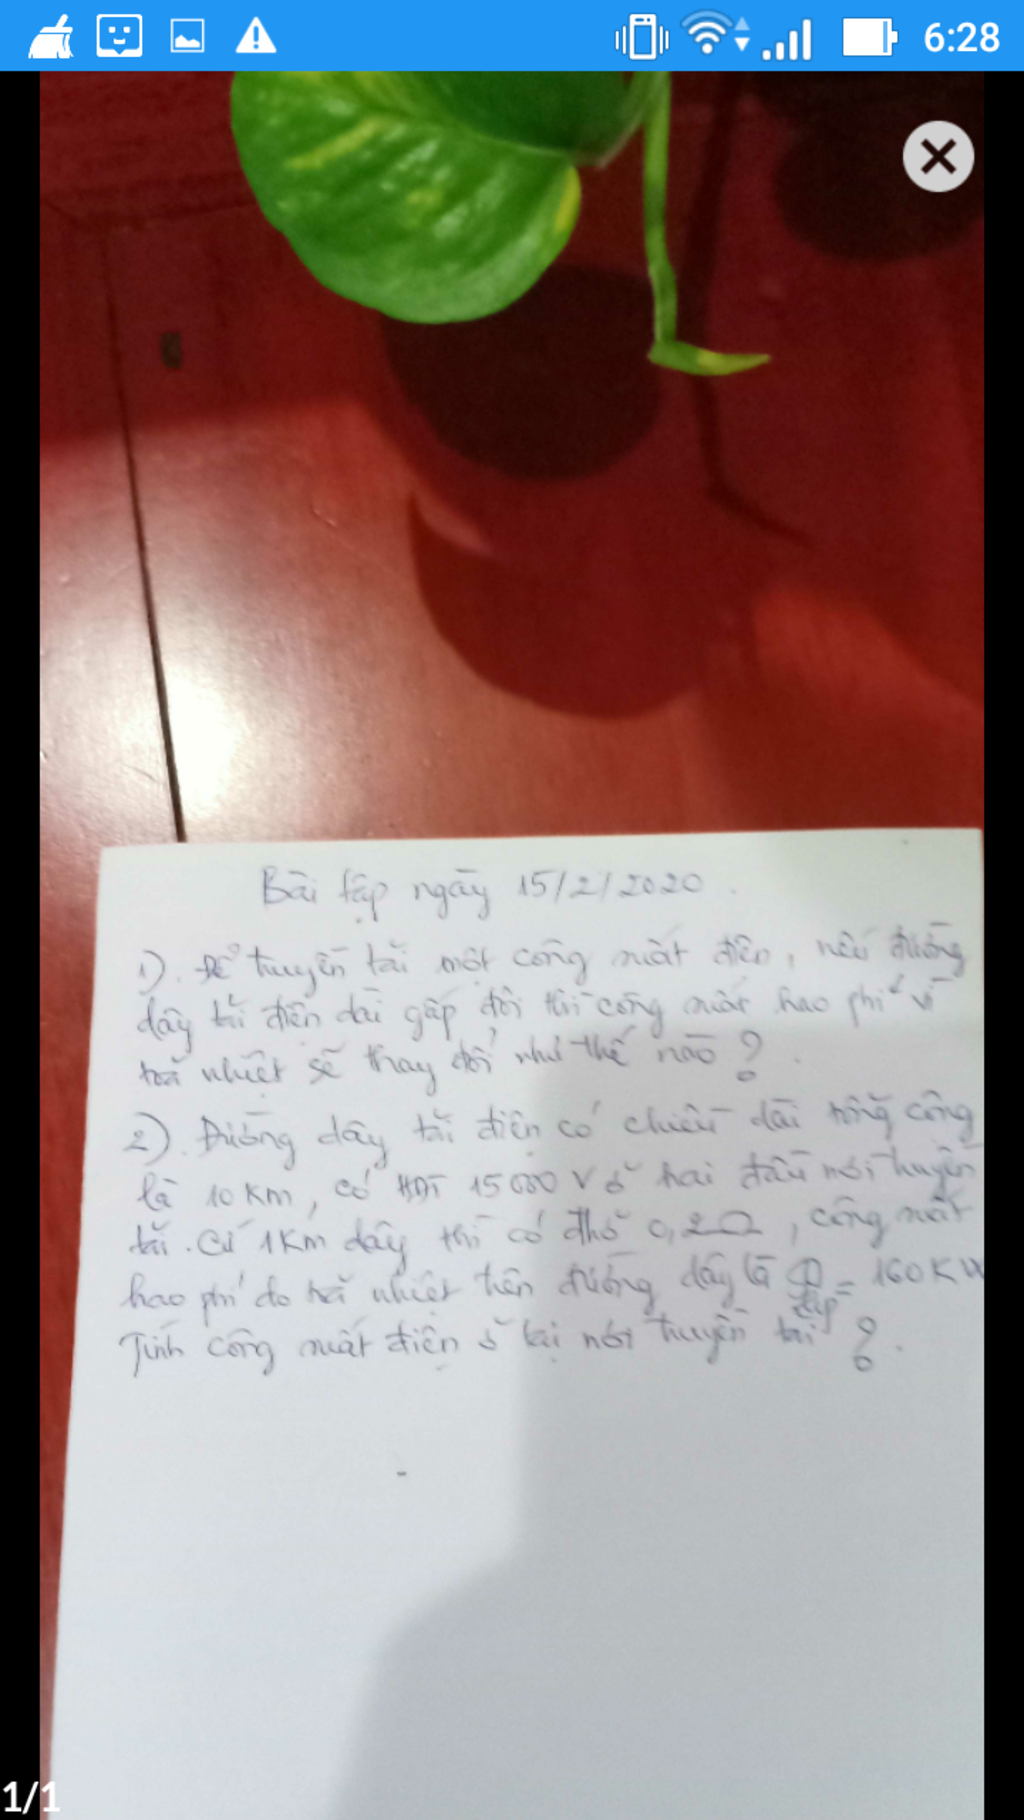 6:28
Bài tập ngày 15/2/2020.
1). Để truyền tải một công suất điện, nếu đường
dây tải điện dài gấp đôi thì công suất hao phí vì
toả nhiệt sẽ thay đổi như thế nào?
2). Đường dây tải điện có chiều dài tổng cộng
là 10 Km, có HĐT 15000 V ở hai đầu nơi truyền
tải. Cứ 1Km dây thì có đtrở 0,2Ω, công suất
hao phí do toả nhiệt trên đường dây là P = 160KW
Tính công suất điện ở tại nơi truyền tải?
1/1